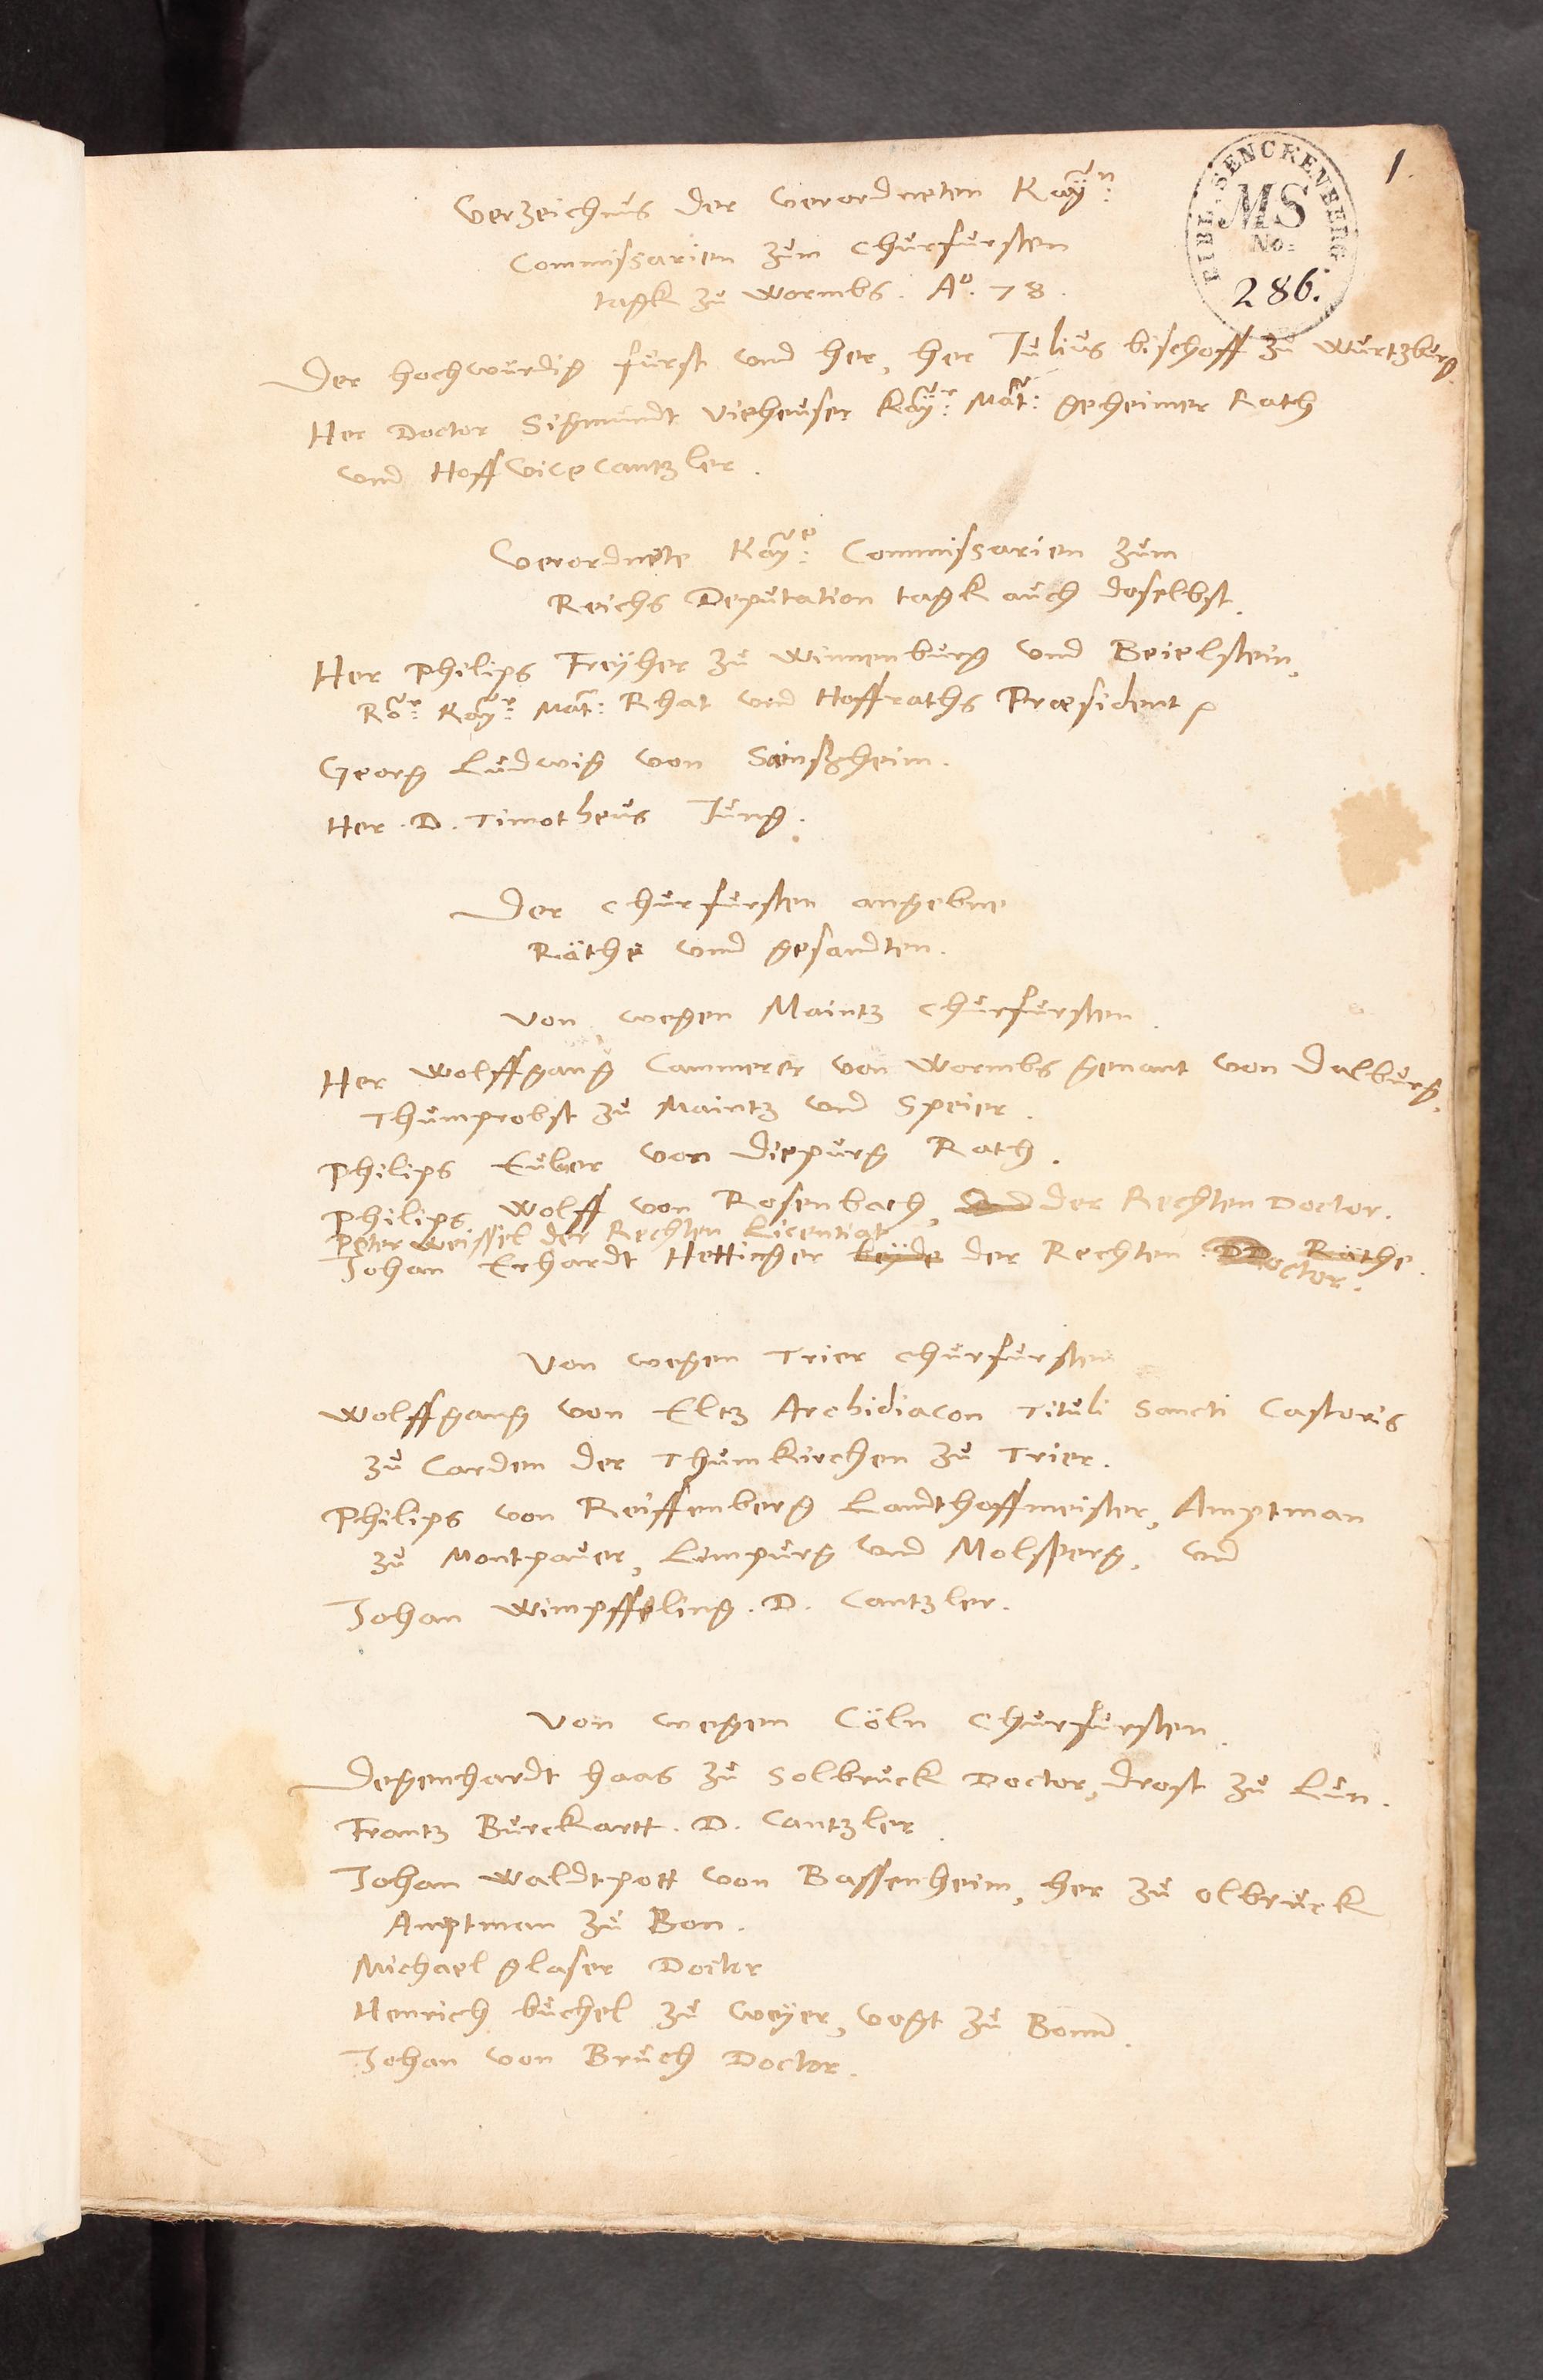 1.
BIBL. SENCKENBERG
MS
No:
286.
Verzeichnus der verordneten Kayn:
Commissarien zum Churfursten
tagk zu Wormbs. Ao. 78.
Der hochwurdig furst und her, her Julius bischoff zu Wurtzburg.
Her Doctor Sigmundt Vieheuser Kayr: Mat: geheimer Rath
und Hoff Vice Cantzler.
Verordnete Kaye: Commissarien zum
Reichs Deputation tagk auch doselbst.
Her Philips Freyher zu Winnenburg und Beielstein,
Ror: Kayr: Mat: Rhat und Hoffraths Præsident
Georg Ludwig von Sainßheim.
Her. D. Timotheus Jung.
Der Churfursten angebne
Räthe und gesandten.
Von wegen Maintz Churfursten.
Her Wolffgang Cammerer von Wormbs genant von Dalburg,
Thumprobst zu Maintz und Speier.
Philips Euller von Diepurg Rath.
Philips Wolff von Rosenbach, und der Rechten Doctor.
Peter Weissel der Rechten Licentiat
Johan Erhardt Hettinger beyde der Rechten DD Räthe.
Doctor.
Von wegen Trier Churfursten
Wolffgang von Eltz Archidiacon Tituli Sancti Castoris
zu Carden der Thumkirchen zu Trier.
Philips von Reiffenberg Landthoffmeister, Amptman
zu Montpauer, Limpurg und Molsperg, und
Johan Wimpffeling. D. Cantzler.
Von wegen Cöln Churfursten.
Degenhardt haas zu Solbruck Doctor, Drost zu Lun.
Frantz Burckartt. D. Cantzler.
Johan Waldtpott von Bassenheim, her zu Olbruck
Amptman zu Bon.
Michael glaser Doctor
Henrich buchel zu Weyer, Vogt zu Bonn.
Johan von Bruch Doctor.